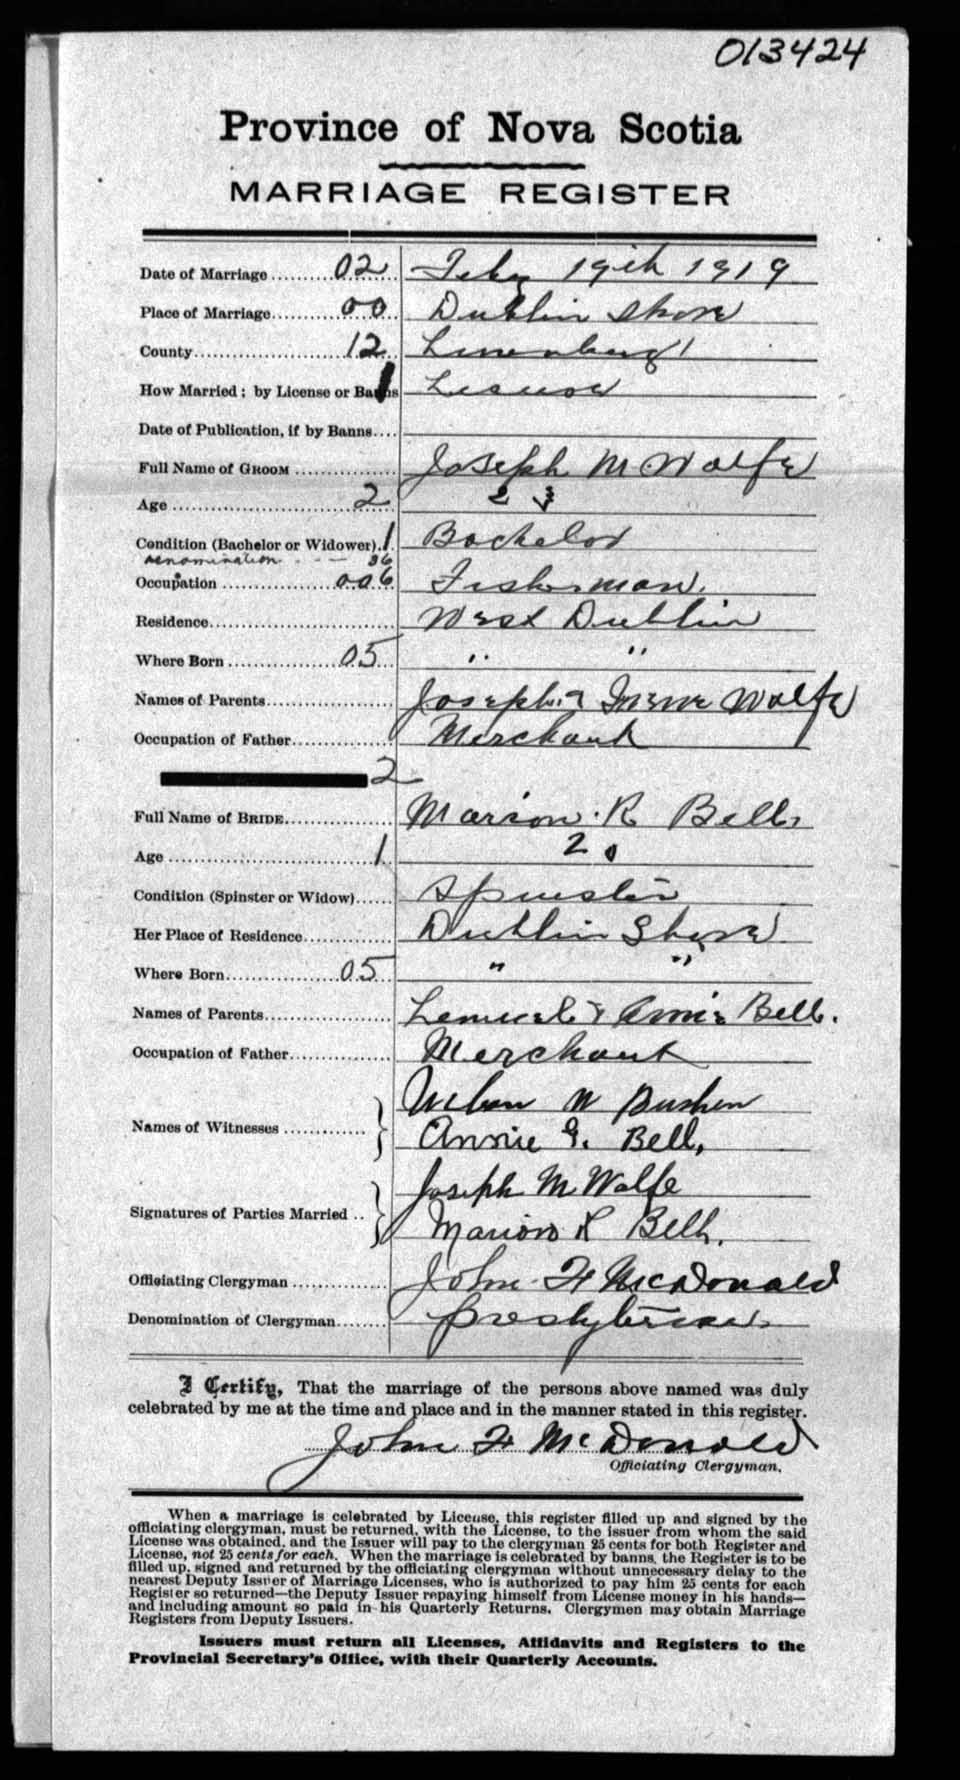 013424
Province of Nova Scotia
MARRIAGE REGISTER
Date of Marriage ........ 02 Feby 19th 1919
Place of Marriage ........ 00 Dublin Shore
County ........ 12 Lunenburg
How Married; by License or Banns 1 License
Date of Publication, if by Banns....
Full Name of GROOM ........ Joseph M Wolfe
Age ........ 2 23
Condition (Bachelor or Widower). 1 Bachelor
Denomination - - - 36
Occupation ........ 006 Fisherman.
Residence ........ West Dublin
Where Born ........ 05 " "
Names of Parents ........ Joseph & Irene Wolfe
Occupation of Father ........ Merchant
2
Full Name of BRIDE ........ Marion R Bell
Age ........ 1 20
Condition (Spinster or Widow)...... Spinster
Her Place of Residence ........ Dublin Shore
Where Born ........ 05 " "
Names of Parents ........ Lemuel & Annie Bell.
Occupation of Father ........ Merchant
Names of Witnesses ........ W Bushen
Annie G. Bell,
Signatures of Parties Married .. Joseph M Wolfe
Marion R Bell.
Officiating Clergyman ........ John H McDonald
Denomination of Clergyman ........ Presbyterian
I Certify, That the marriage of the persons above named was duly
celebrated by me at the time and place and in the manner stated in this register.
John H McDonald
Officiating Clergyman.
When a marriage is celebrated by License, this register filled up and signed by the
officiating clergyman, must be returned, with the License, to the issuer from whom the said
License was obtained, and the Issuer will pay to the clergyman 25 cents for both Register and
License, not 25 cents for each. When the marriage is celebrated by banns, the Register is to be
filled up, signed and returned by the officiating clergyman without unnecessary delay to the
nearest Deputy Issuer of Marriage Licenses, who is authorized to pay him 25 cents for each
Register so returned—the Deputy Issuer repaying himself from License money in his hands—
and including amount so paid in his Quarterly Returns. Clergymen may obtain Marriage
Registers from Deputy Issuers.
Issuers must return all Licenses, Affidavits and Registers to the
Provincial Secretary's Office, with their Quarterly Accounts.